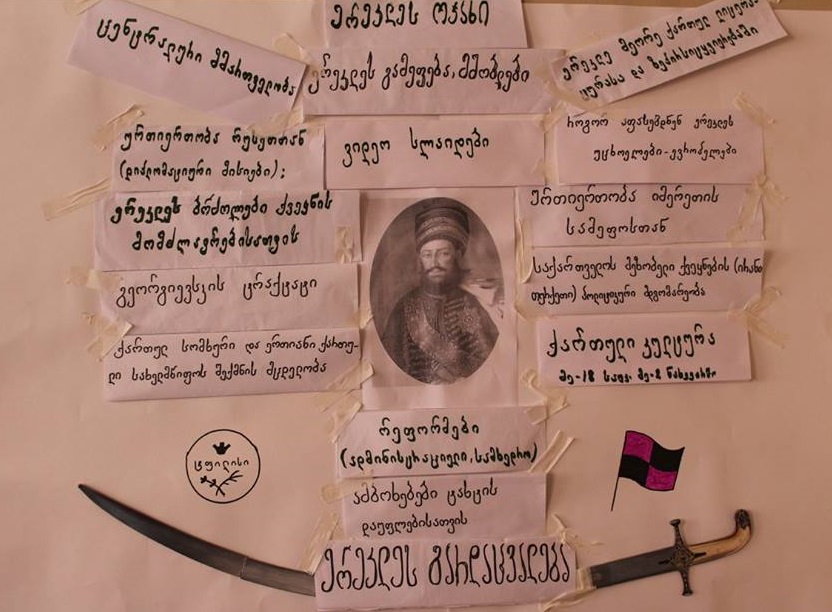 ერეკლეს ოჯახი
ცენტრალური მმართველობა
ერეკლეს გამეფება, მშობლები
ერეკლე მეორე ქართულ ლიტერა-
ტურასა და ზეპირსიტყვიერებაში
ურთიერთობა რუსეთთან
(დიპლომატიური მისიები);
ვიდეო სლაიდები
როგორ აფასებდნენ ერეკლეს
უცხოელები-ევროპელები
ერეკლეს ბრძოლები ქვეყნის
მომძლავრებისათვის
ურთიერთობა იმერეთის
სამეფოსთან
გეორგიევსკის ტრაქტატი
საქართველოს მეზობელი ქვეყნების (ირანი
თურქეთი) პოლიტიკური მდგომარეობა
ქართულ სომხური და ერთიანი ქართუ-
ლი სახელმწიფოს შექმნის მცდელობა
ქართული კულტურა
მე-18 საუკ. მე-2 ნახევარში
რეფორმები
(ადმინისტრაციული, სამხედრო)
ტფილისი
ამბოხებები ტახტის
დაუფლებისათვის
ერეკლეს გარდაცვალება